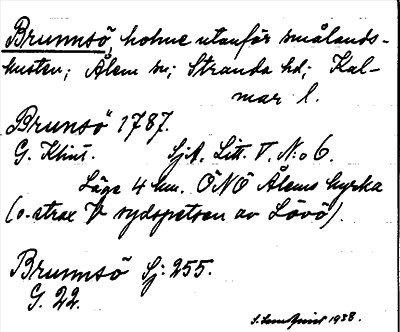 Brunnsö, holme utanför smålands-
kusten; Ålem sn; Stranda hd; Kal-
mar l.
Brunsö 1787.
G. Klint. Sjk. Litt. V. N:o 6.
Läge 4 km. ÖNÖ Ålems kyrka
(o. strax V sydspetsen av Lövö).
Brunnsö Sj. 255.
G. 22.
1938.